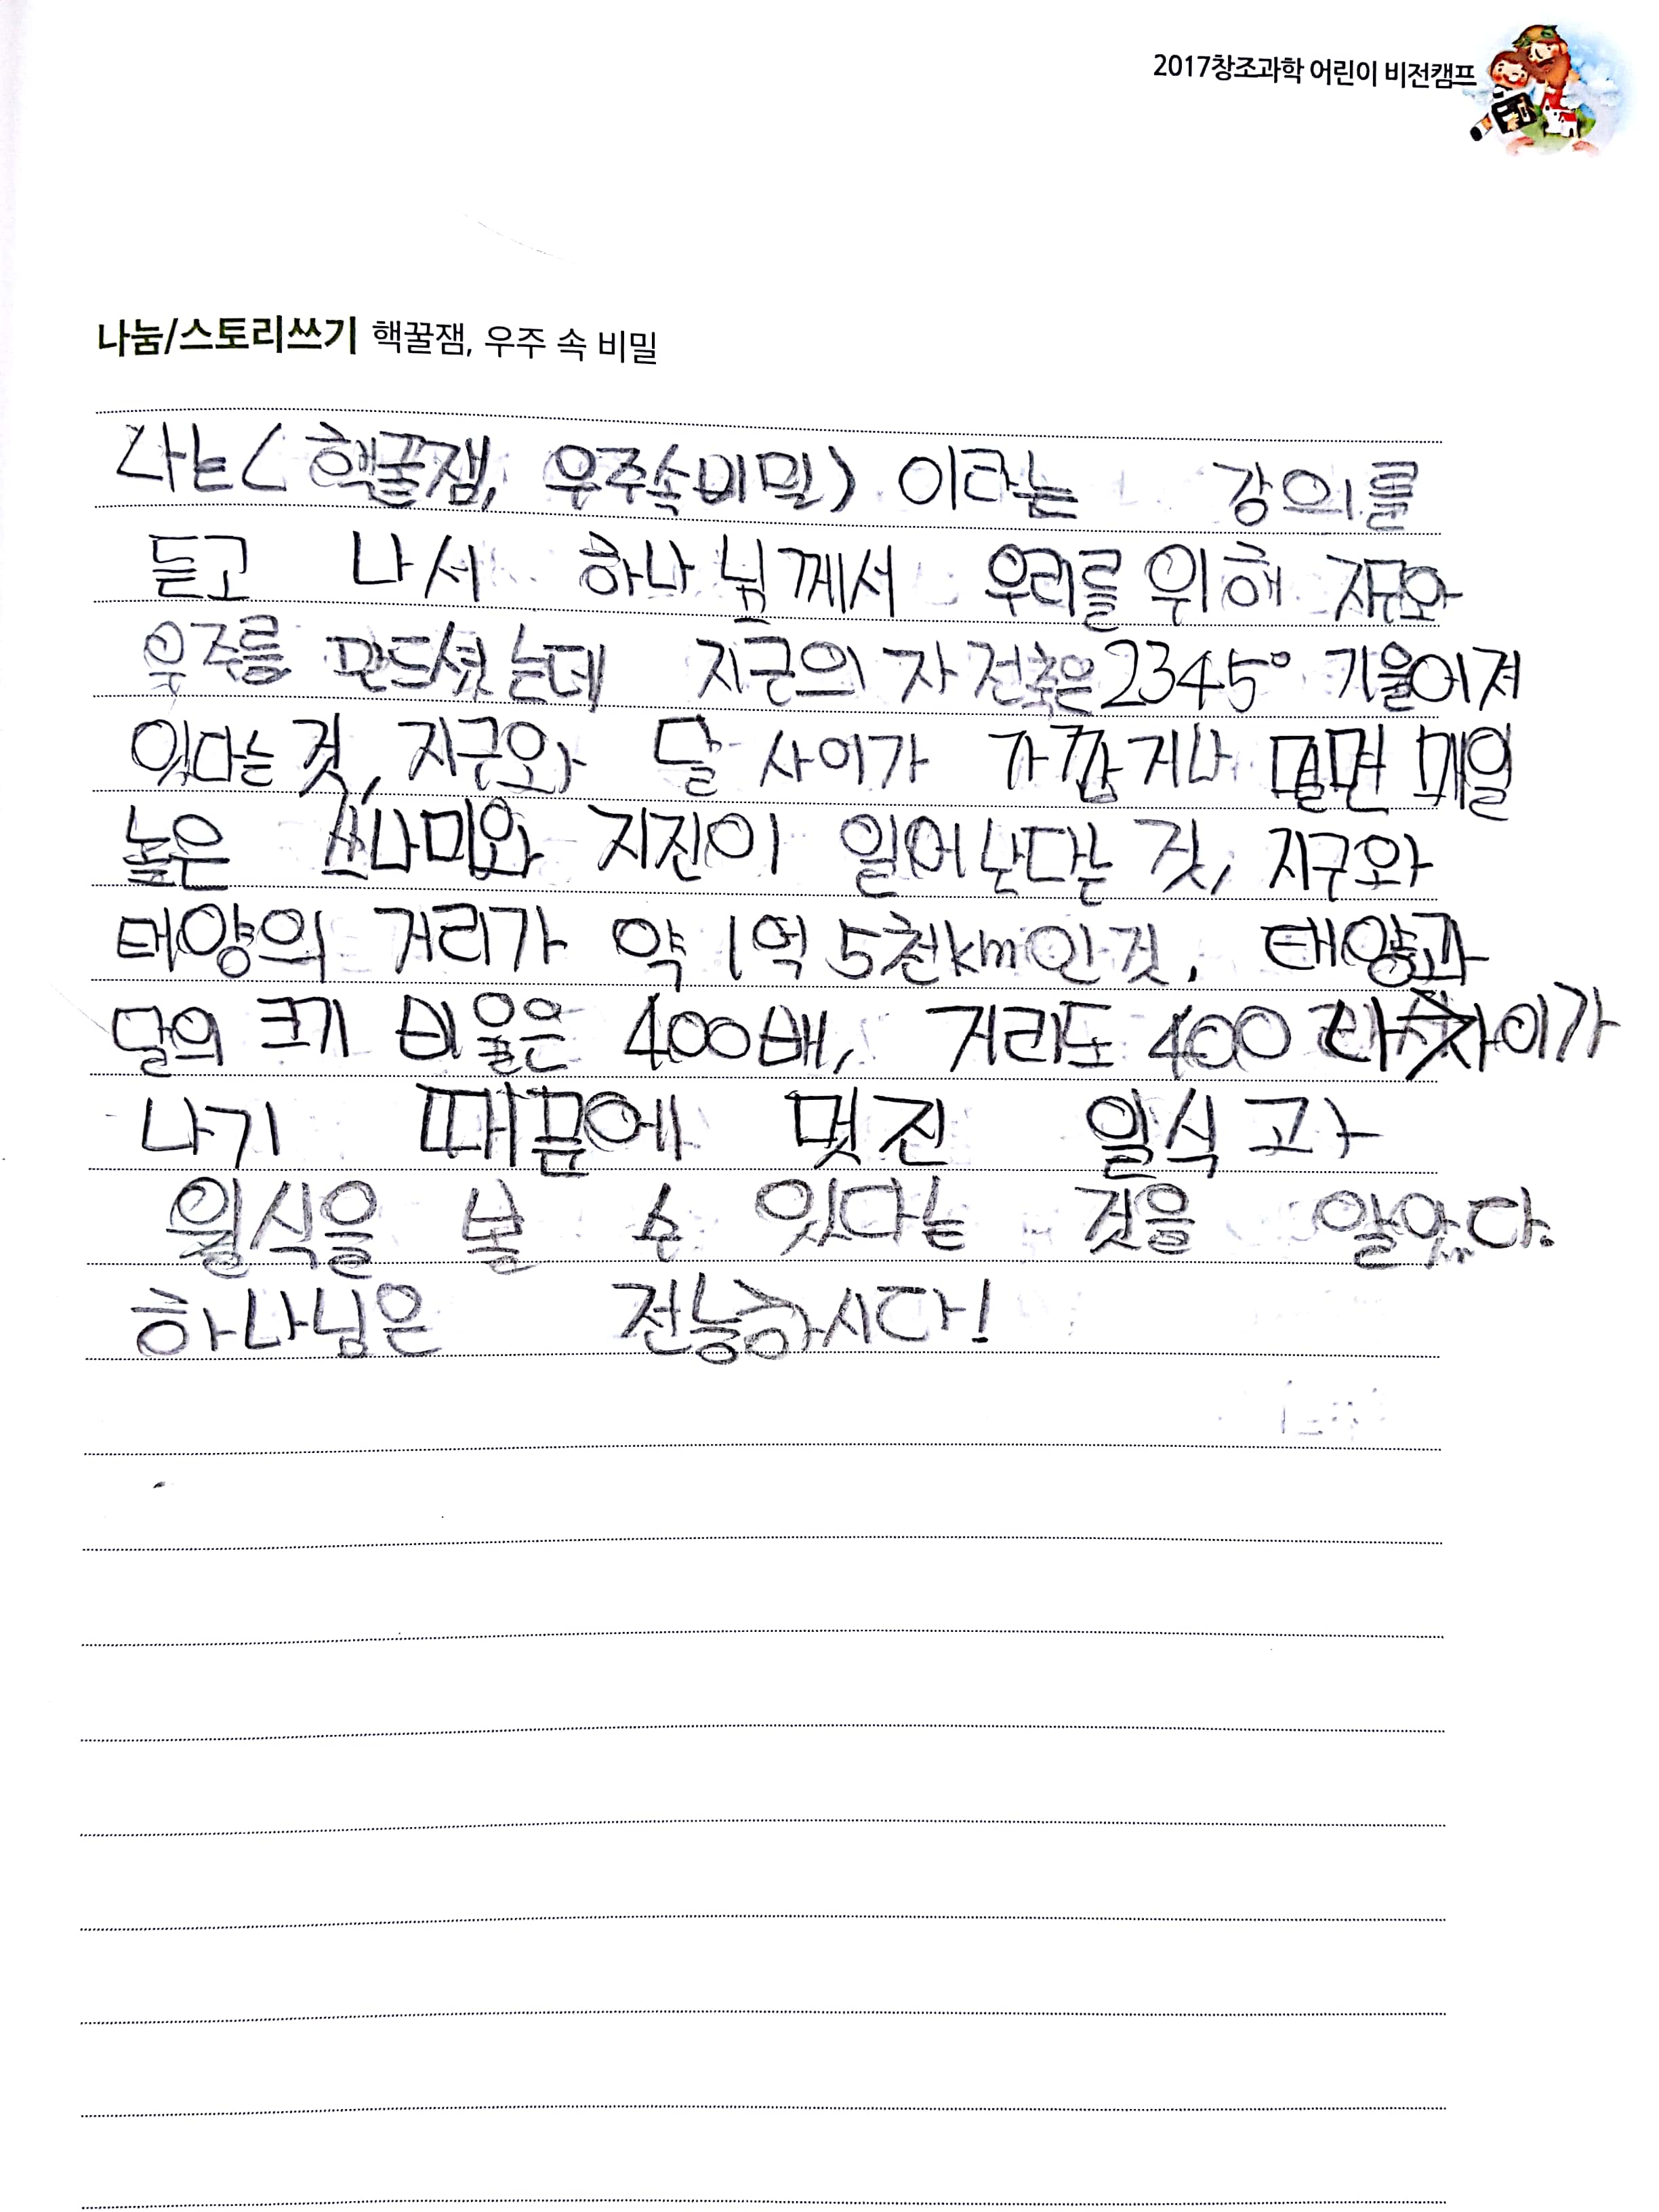 2017창조과학 어린이 비전캠프
나눔/스토리쓰기 핵꿀잼, 우주 속 비밀
나는< 핵꿀잼, 우주속비밀> 이라는 강의를
듣고 나서 하나님께서 우리를 위해 지구와
우주를 만드셨는데 지군의 자전축은 23.45° 기울어져
있다는 것, 지구와 달 사이가 가깝거나 멀면 매일
높은 쓰나미와 지진이 일어난다는 것, 지구와
태양의 거리가 약 1억 5천km인 것, 태양과
달의 크기 비율은 400배, 거리도 400 차이가
나기 때문에 멋진 일식과
월식을 볼 수 있다는 것을 알았다.
하나님은 전능하시다!